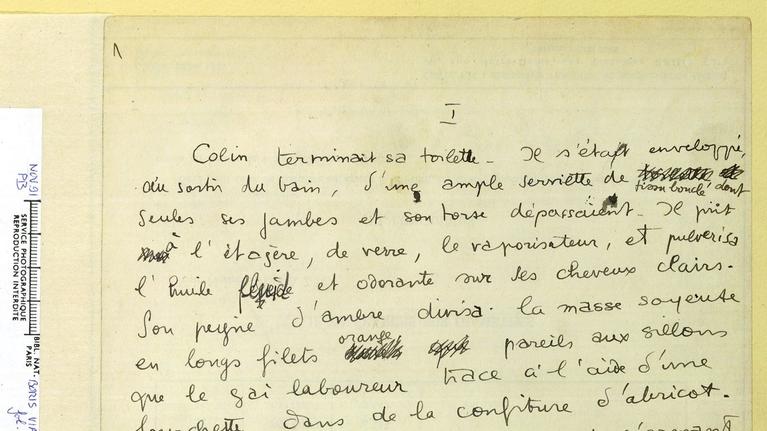 1
I
Colin terminait sa toilette. Il s'était enveloppé,
au sortir du bain, d'une ample serviette de
tissu bouclé dont
seules ses jambes et son torse dépassaient. Il prit
à l'étagère, de verre, le vaporisateur, et pulvérisa
l'huile fluide et odorante sur ses cheveux clairs.
Son peigne d'ambre divisa la masse soyeuse
en longs filets orange pareils aux sillons
que le gai laboureur trace à l'aide d'une
fourchette dans de la confiture d'abricot.
NOV 91
PB
SERVICE PHOTOGRAPHIQUE
REPRODUCTION INTERDITE
BIBL. NAT.
PARIS
BORIS